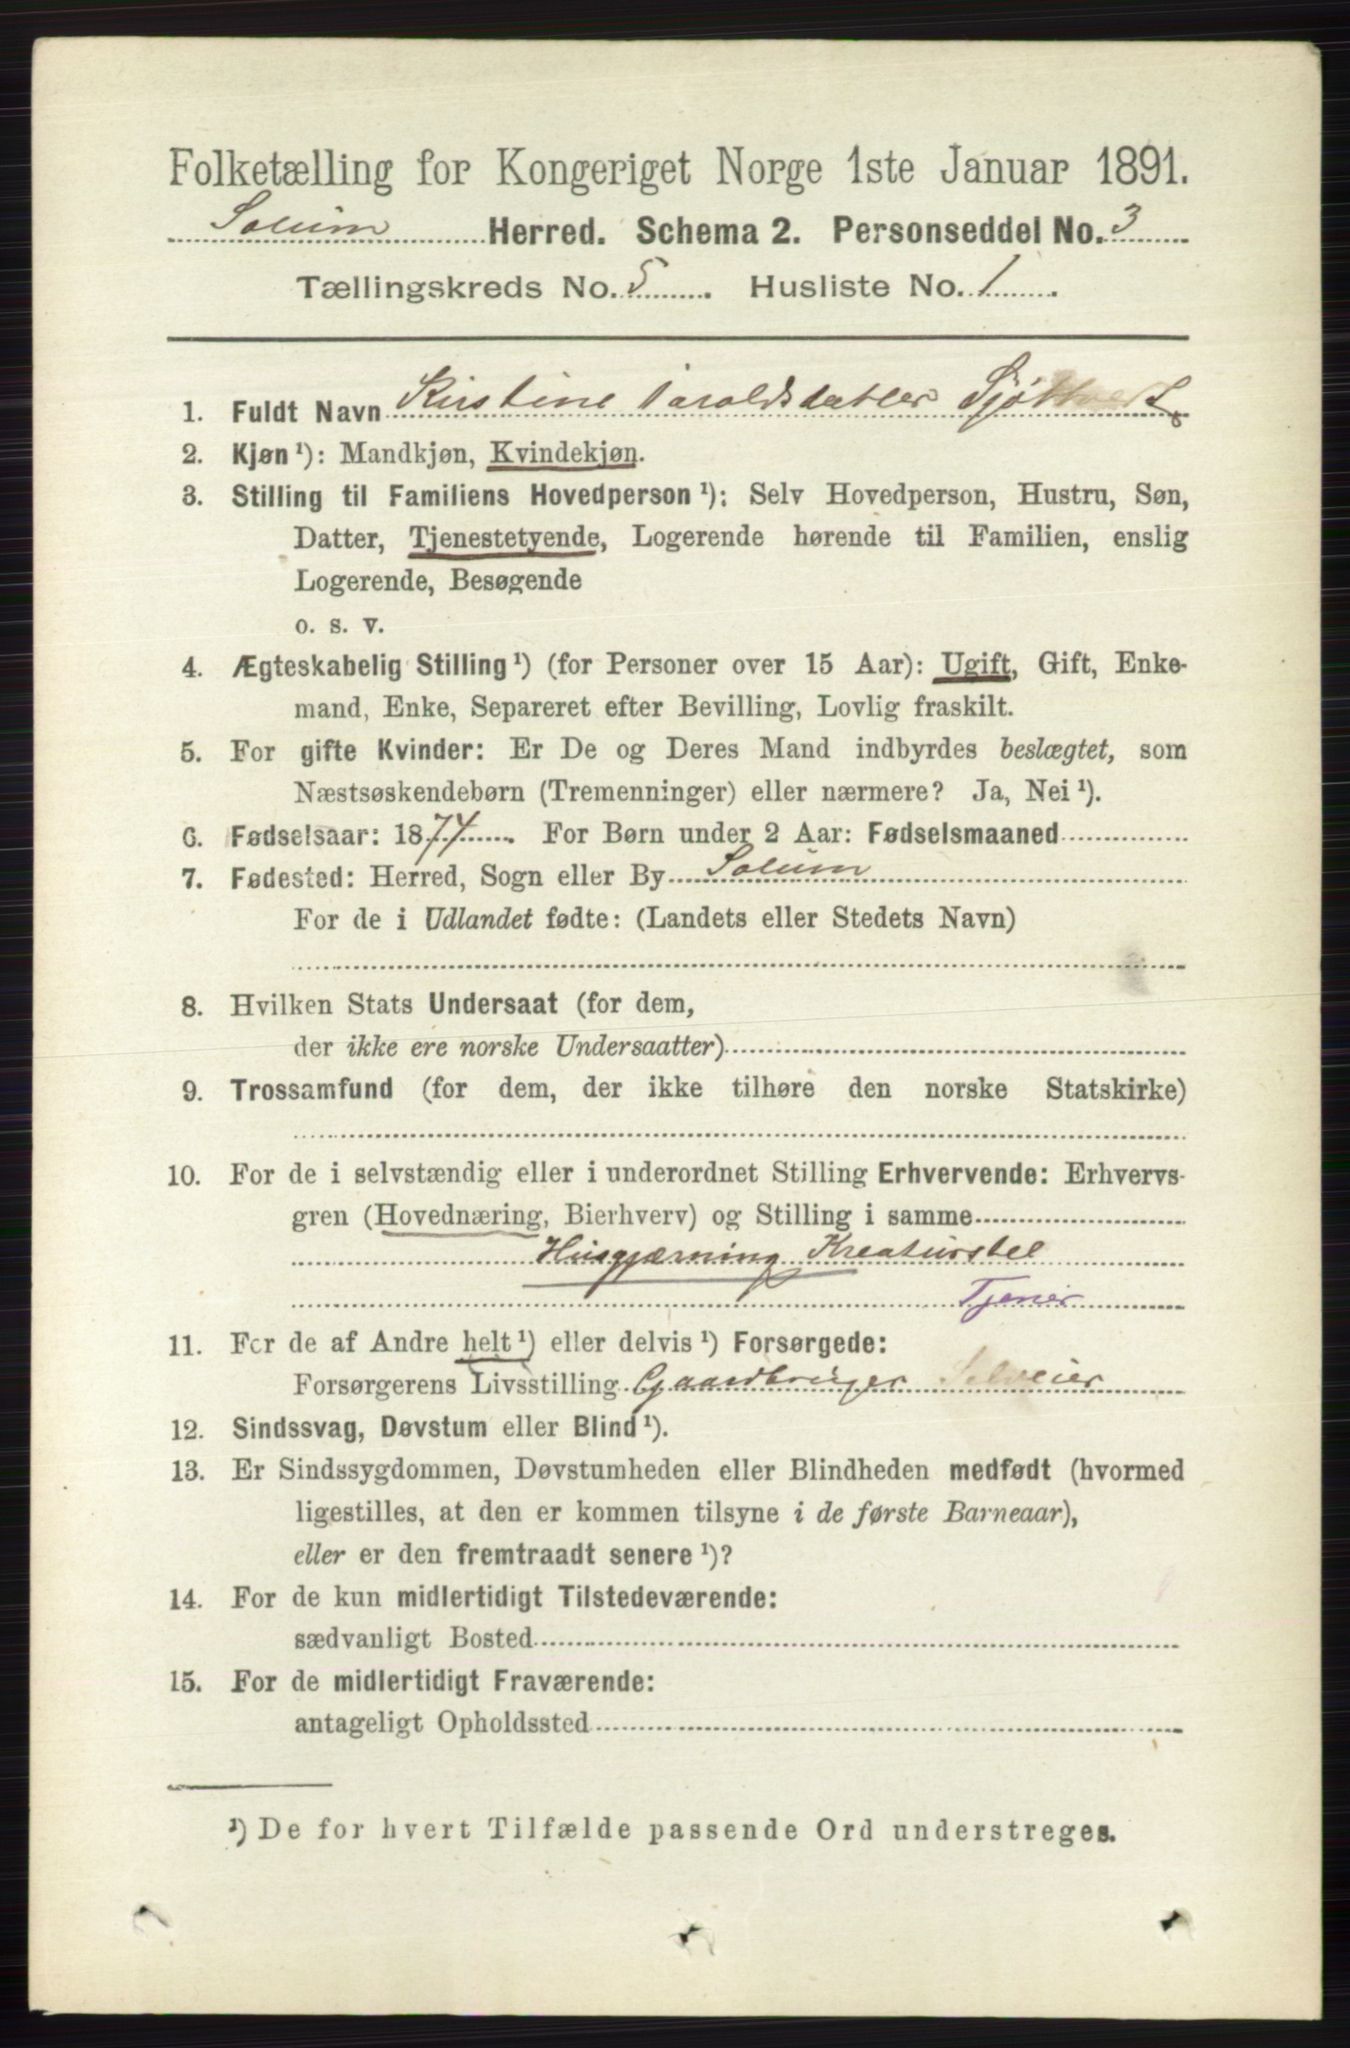 Folketælling for Kongeriget Norge 1ste Januar 1891.
Solum Herred. Schema 2. Personseddel No. 3
Tællingskreds No. 5. Husliste No. 1.
1. Fuldt Navn Kirstine
2. Kjøn ¹): Mandkjøn, Kvindekjøn.
3. Stilling til Familiens Hovedperson ¹): Selv Hovedperson, Hustru, Søn,
Datter, Tjenestetyende, Logerende hørende til Familien, enslig
Logerende, Besøgende
o. s. v.
4. Ægteskabelig Stilling ¹) (for Personer over 15 Aar): Ugift, Gift, Enke-
mand, Enke, Separeret efter Bevilling, Lovlig fraskilt.
5. For gifte Kvinder: Er De og Deres Mand indbyrdes beslægtet, som
Næstsøskendebørn (Tremenninger) eller nærmere? Ja, Nei ¹).
6. Fødselsaar: 1874. For Børn under 2 Aar: Fødselsmaaned
7. Fødested: Herred, Sogn eller By Solum
For de i Udlandet fødte: (Landets eller Stedets Navn)
8. Hvilken Stats Undersaat (for dem,
der ikke ere norske Undersaatter)
9. Trossamfund (for dem, der ikke tilhøre den norske Statskirke)
10. For de i selvstændig eller i underordnet Stilling Erhvervende: Erhvervs-
gren (Hovednæring, Bierhverv) og Stilling i samme
Husgjærning Kreaturstel
Tjener
11. For de af Andre helt ¹) eller delvis ¹) Forsørgede:
Forsørgerens Livsstilling Gaardbruger Selveier
12. Sindssvag, Døvstum eller Blind ¹).
13. Er Sindssygdommen, Døvstumheden eller Blindheden medfødt (hvormed
ligestilles, at den er kommen tilsyne i de første Barneaar),
eller er den fremtraadt senere ¹)?
14. For de kun midlertidigt Tilstedeværende:
sædvanligt Bosted
15. For de midlertidigt Fraværende:
antageligt Opholdssted
¹) De for hvert Tilfælde passende Ord understreges.